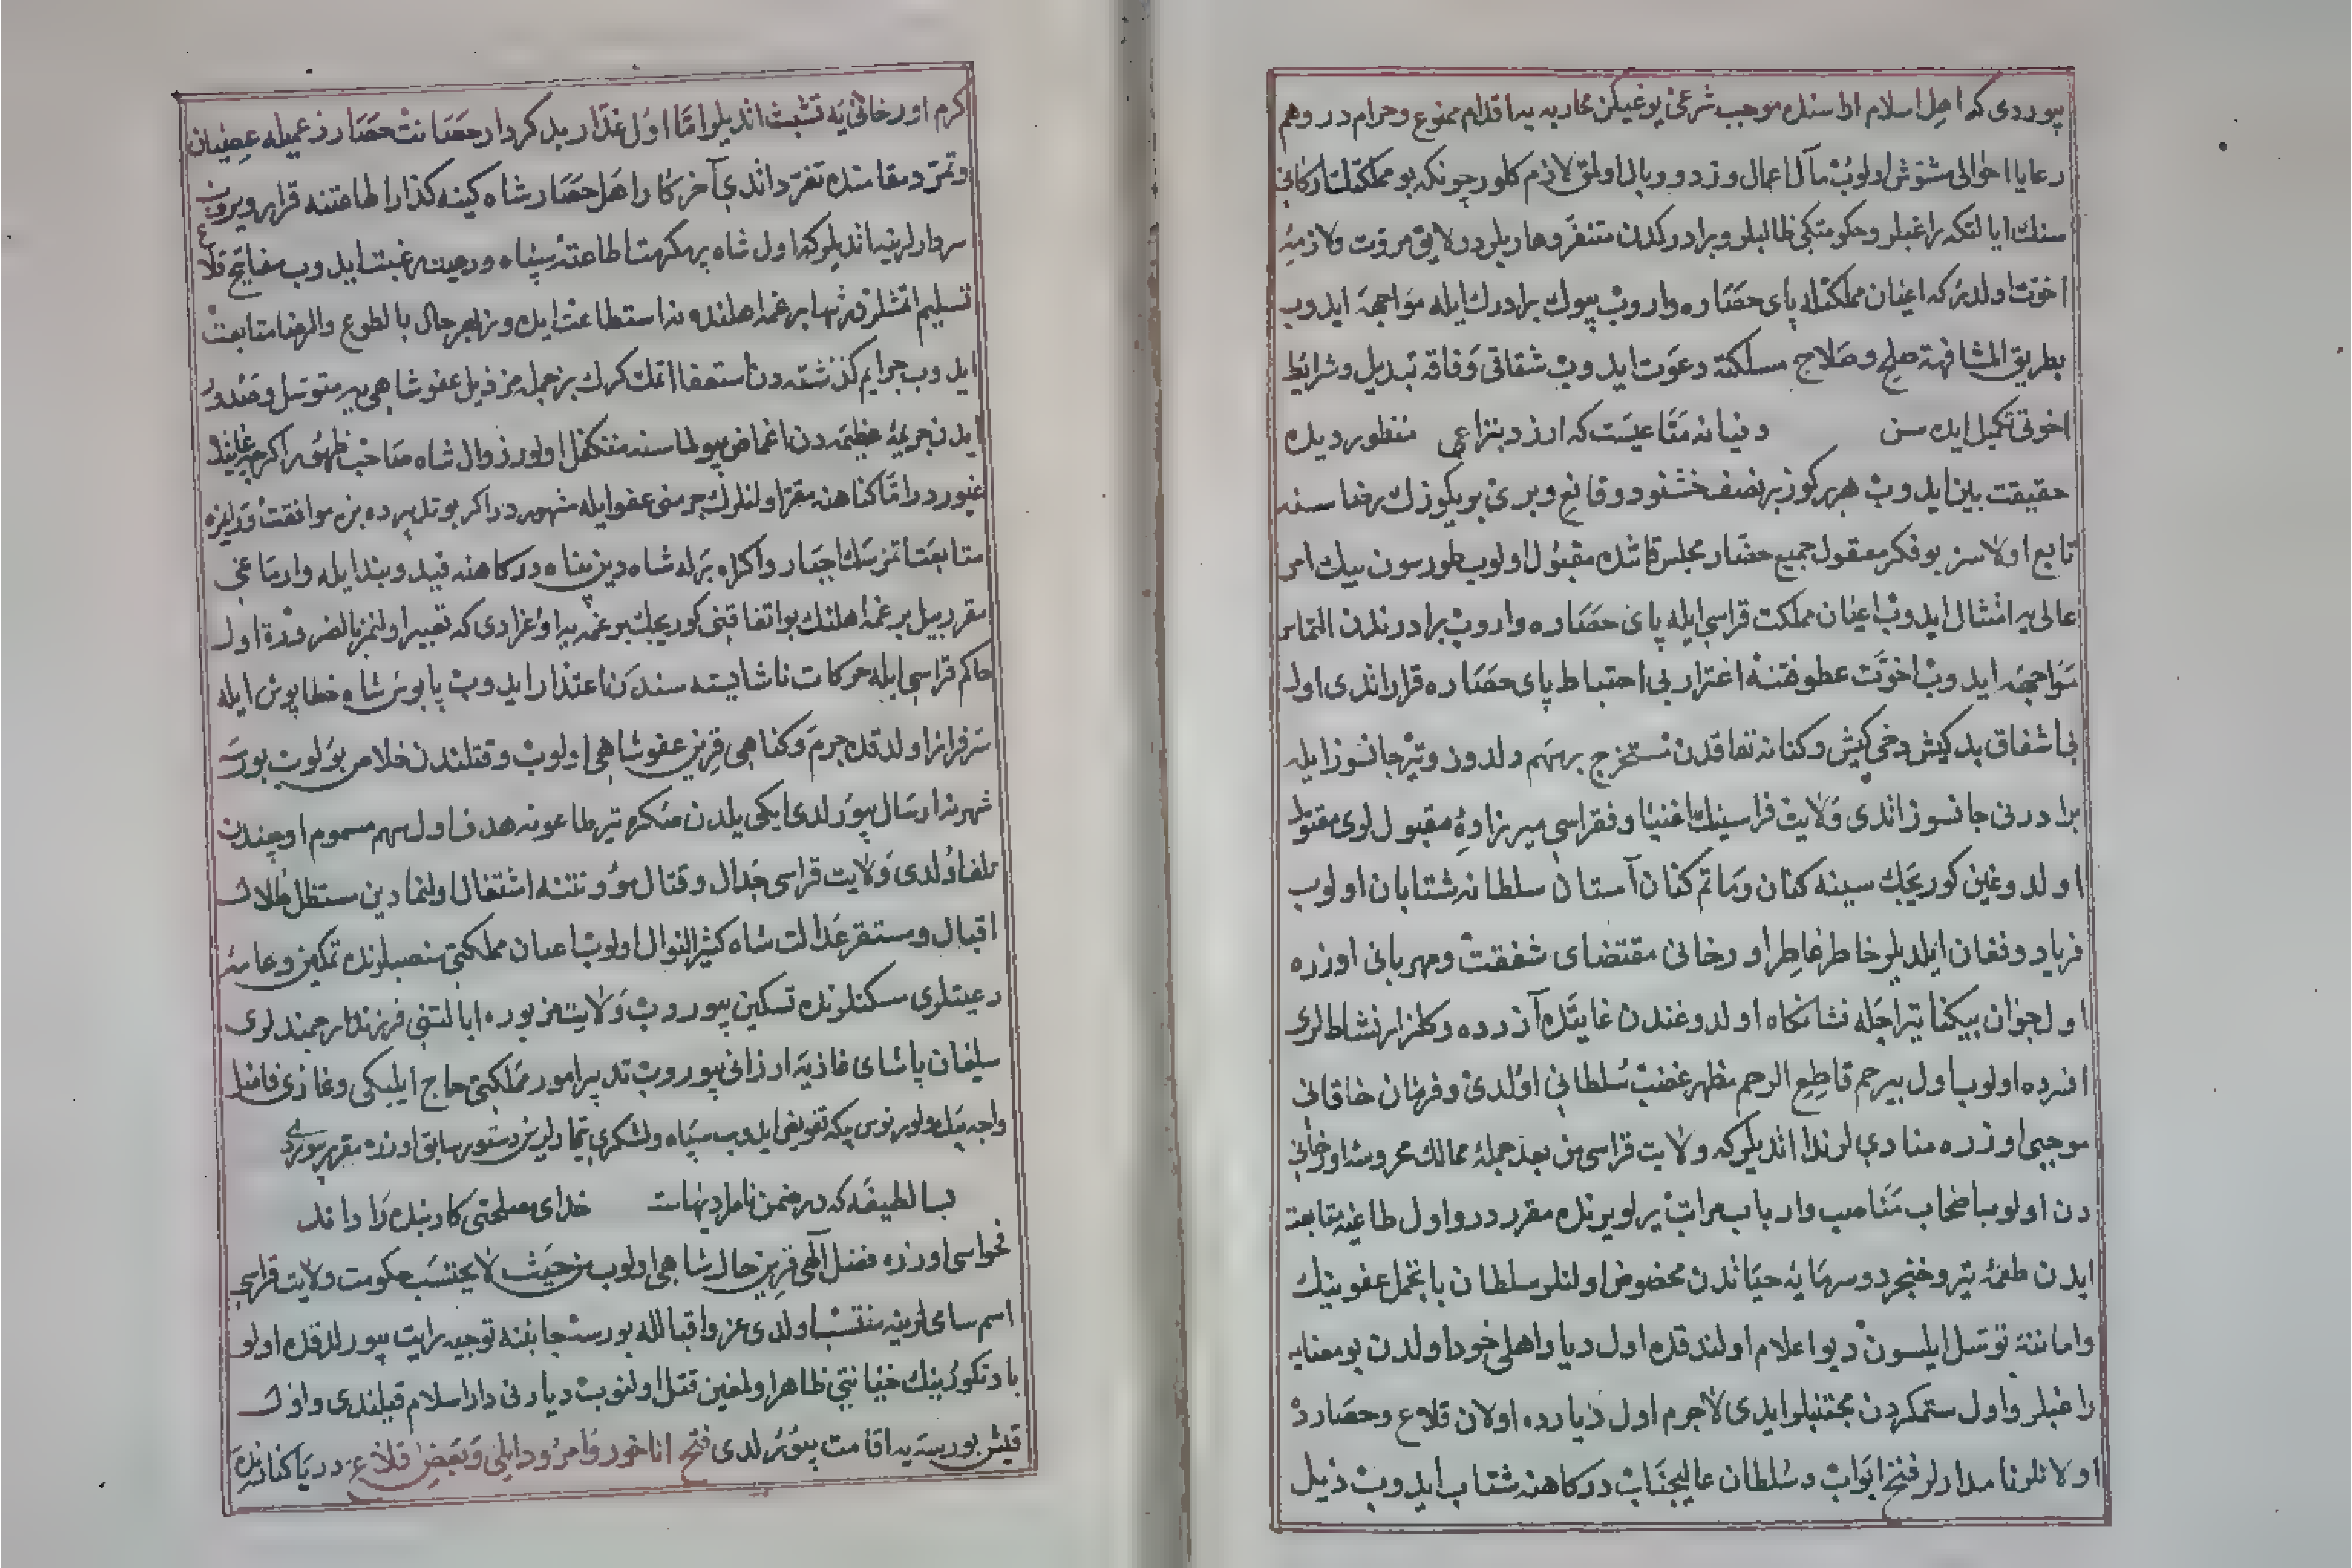 بیوردی که اهل اسلام اراسنده موجب شرعی یوغیکن محاربه یه اقدام ممنوع و حرام در و هم
رعایا احوالی مشوش اولوب مآل اعمال وزر و وبال اولمق لازم کلور چونکه بو مملکتک ارکانی
سنك ایالتکه راغبلر و حکومتکی طالبلر و برادرکدن متنفر و هاربلردر لایق مروت و لازمۀ
اخوت اولدر که اعیان مملکتله پای حصاره واروب بیوك برادرك ایله مواجهه ایدوب
بطریق المشافهة صلح و صلاح مسلکنه دعوت ایدوب شقاقی وفاقه تبدیل و شرایط
اخوتی تکمیل ایده سن دنیا نه متاعیست که ارزد بنزاعی منظور دیده
حقیقت بین ایدوب هر بر کوز بر نصف خشنود و قانع و بری بریکوزك رضاسنه
تابع اولاسز بو فکر معقول جمیع حضار مجلس قاتنده مقبول اولوب طورسون بیك امر
عالی یه امتثال ایدوب اعیان مملکت قراسی ایله پای حصاره واروب برادرندن التماس
مواجهه ایدوب اخوت عطوفتنه اغترار بی احتیاط پای حصاره قرار اندی اول
بی اشفاق بد کیش دخی کیش و کنانه نفاقدن مستخرج بر سهم دلدوز و تیر جانسوز ایله
برادرنی جانسوز اندی ولایت قراسینك اغنیا و فقراسی میرزادۀ مقبوللری مقتول
اولدوغین کوریجك سینه کنان و ماتم کنان آستان سلطانه شتابان اولوب
فریاد و فغان ایلدیلر خاطر عاطر اورخانی مقتضای شفقت و مهربانی اوزره
اول جوان بیکناه تیر اجله نشانکاه اولدوغندن غایتده آزرده و کلزار نشاطلری
افسرده اولوب اول بیرحم قاطع الرحم مظهر غضب سلطانی اولدی و فرمان خاقانی
موجبی اوزره منادیلر ندا اندیلر که ولایت قراسی من بعد جملۀ ممالك محروسۀ اورخانی
دن اولوب اصحاب مناصب و ارباب مراتب یرلو یرنده مقرر در و اول طاغیه متابعت
ایدن طعمۀ تیر و خنجر و سرمایه حیاتدن اولنلر سلطان عفوینك
و اماننه توسل ایلسون دیو اعلام اولندقده اول دیار اهلی خود اولدن بو معنایه
راغبلر و اول ستمکردن مجتنبلر ایدی لاجرم اول دیارده اولان قلاع و حصارد
اولانلر نامدارلر فتح ابواب و سلطان عالیجناب درکاهنه شتاب ایدوب ذیل
کرم اورخانی یه تشبث اندیلر اما اول غدار بد کردار حصانت حصار زعمیله عصیان
و تمرد مقامنده تفرد اندی آخر کار اهل حصار شاه کینه کذار اطاعتنه قرار ویروب
سردارلرینه اندیلر که اول شاه اطاعتنه سپاه و رعیت رغبت ایدوب مفاتیح قلاع
تسلیم اتمشلردر برغمه اهلنده نه استطاعت ایده وز بهر حال بالطوع والرضا متابعت
ایدوب جرایم کذشته دن استعفا اتمك کرك بر جمله مز ذیل عفو شاهی یه متوسل و صدور
ایدن جریمۀ عظیمه دن اغماض بیولماسنه متکفل اولورز اول شاه صاحب ظهور اکرچه غایتله
غیور در اما کناهنه مقر اولنلرك جرمنی عفو ایله مشهور در اکر بو تدبیرده بزه موافقت و رایمزه
متابعت اتمزسك اجبار و اکراه برله شاه دین پناه درکاهنه قید و بند ایله وارماغی
مقرر بیل برغمه اهلنك بو اتفاقنی کوریجك بر غمه یه اوغرادی که تعبیر اولنمز بالضروره اول
حاکم قراسی ایله حرکات ناشایسته سندن اعتذار ایدوب پابوس شاه خطاپوش ایله
سرفراز اولدقده جرم و کناهی قرین عفو شاهی اولوب و قتلندن خلاص بولوب بورسه
شهرنه ارسال بیورلدی ایکی یلدن صکره تیر طاعونه هدف اول سهم مسموم اوجندن
تلف اولدی ولایت قراسی جدال و قتال مؤونتنه اشتغال اولنمادین مستظل ظلال
اقبال و مستقر عدالت شاه کثیر النوال اولوب اعیان مملکتی منصبلرنده تمکین و عامۀ
رعیتلری مسکنلرنده تسکین بیوروب ولایت مزبوره ایالتنی فرزند ارجمندلری
سلیمان پاشای غازیه ارزانی بیوروب تدبیر امور مملکتی حاج ایلبکی و غازی فاضل
و اجه بیك و اورنوس بیکه تفویض ایدوب سپاه و لشکری تیمارلرین دستور سابق اوزره مقرر بیوردی
بسا لطیفه که در ضمن نامرادیهاست خدای مصلحتی کار بنده را داند
فحواسی اوزره فضل الهی قرین حال شاهی اولوب من حیث لا یحتسب حکومت ولایت قراسی
اسم سامیلرینه منتسب اولدی عز و اقبالله بورسه جانبنه توجیه رایت بیورلدقده اولو
باد تکورینك خیانتی ظاهر اولمغین قتل اولنوب دیارنی دار اسلام قیلندی و اول
قیش بورسه یه اقامت بیورلدی فتح اناخور و امرودایلی و بعض قلاع دریا کنارنده